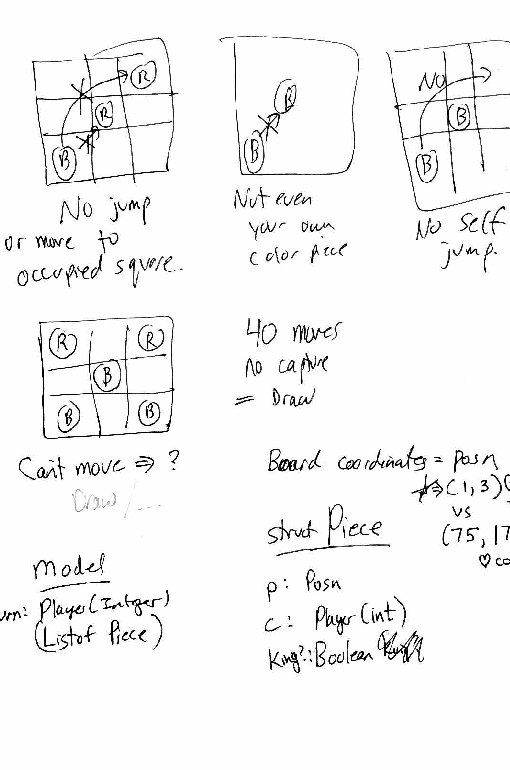 R
R
B
No jump
or move to
occupied square.
B
B
Not even
your own
color piece
No
B
B
No self
jump.
R
R
B
B
B
Can't move ⇒ ?
Draw/...
40 moves
no capture
= Draw
Board coordinates = posn
⇒ (1,3)
vs
(75, 17
♡ co
struct Piece
p: Posn
c: Player (int)
king?: Boolean
Model
urn: Player (Integer)
(Listof Piece)